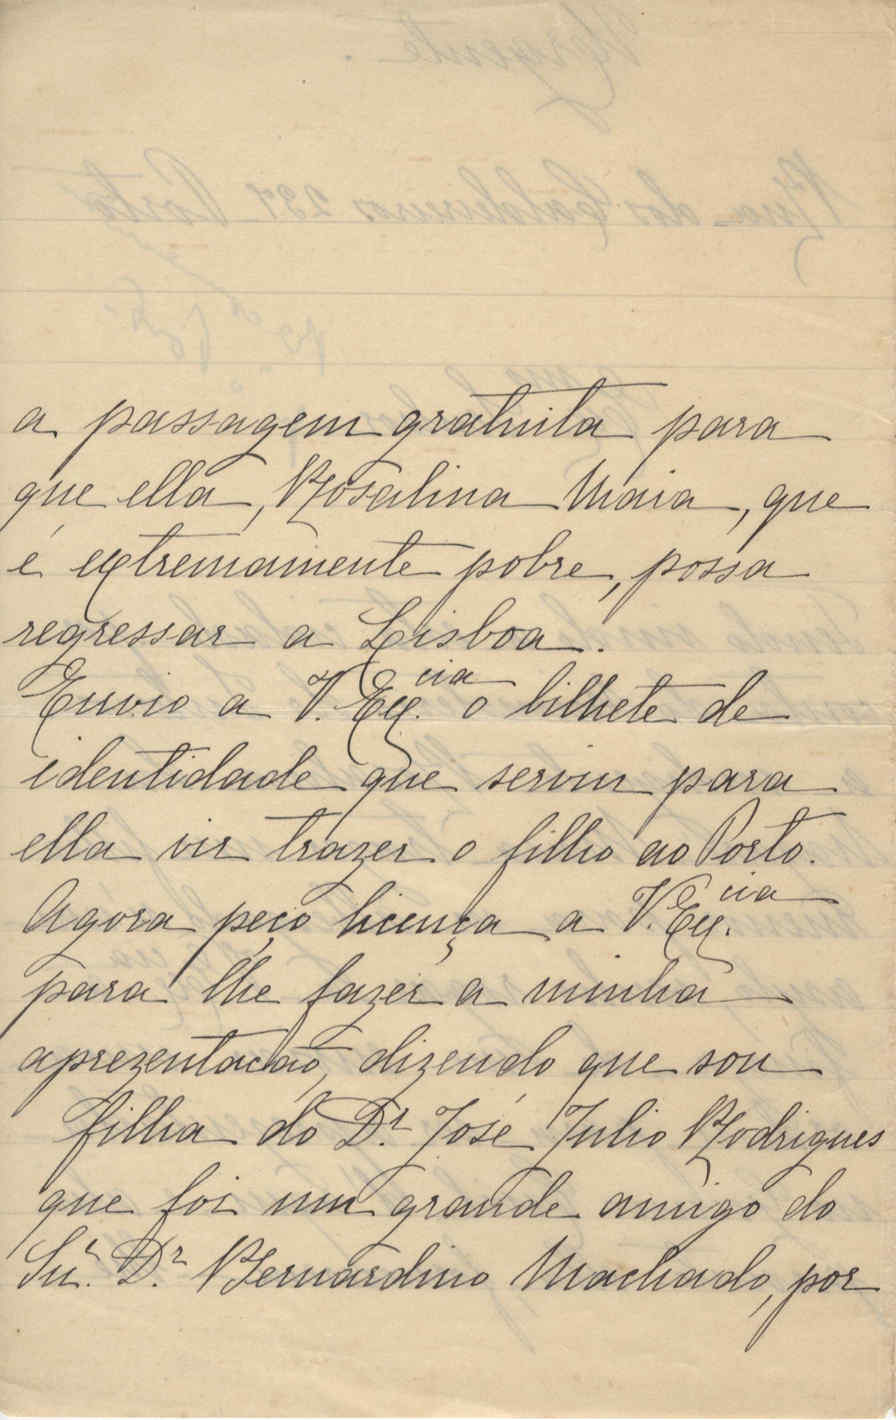 a passagem gratuita para
que ella, Rosalina Maia, que
é extremamente pobre, possa
regressar a Lisboa.
Envio a V. Ex.cia o bilhete de
identidade que serviu para
ella vir trazer o filho ao Porto.
Agora peço licença a V. Ex.cia
para lhe fazer a minha
aprezentação, dizendo que sou
filha do Dr. José Julio Rodrigues
que foi um grande amigo do
Snr. Dr. Bernardino Machado, por